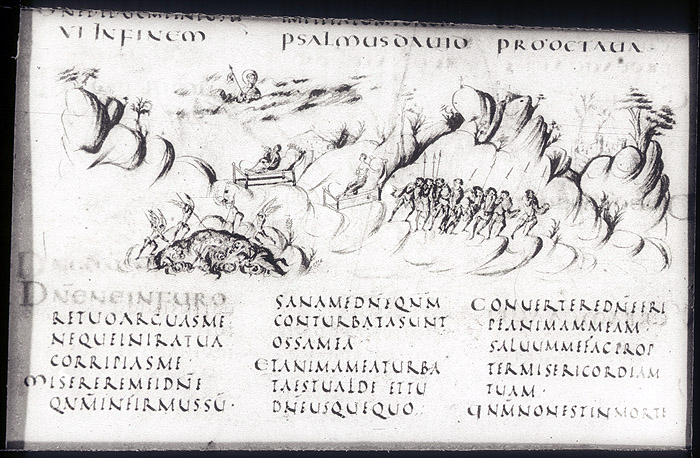 VI INFINEM PSALMUS DAVID PRO OCTAVA
DN̄E NE IN FURO
RE TUO ARGUAS ME
NEQUE IN IRA TUA
CORRIPIAS ME·
MISERERE MEI DN̄E
QNM̄ INFIRMUS SŪ·
SANA ME DN̄E QNM̄
CONTURBATA SUNT
OSSA MEA
ET ANIMA MEA TURBA
TA EST UALDE ET TU
DN̄E USQUEQUO·
CONUERTERE DN̄E ERI
PE ANIMAM MEAM
SALUUM ME FAC PROP
TER MISERICORDIAM
TUAM·
QNM̄ NON EST IN MORTE